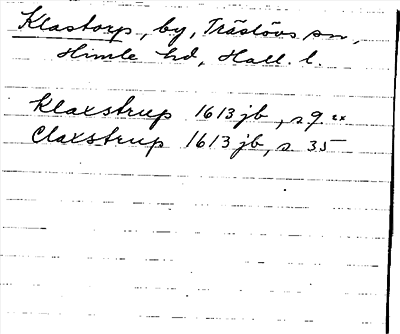 Klastorp, by, Träslövs sn,
Himle hd, Hall. l.
Klaxstrup 1613 jb, s 9 ex
Claxstrup 1613 jb, s 35